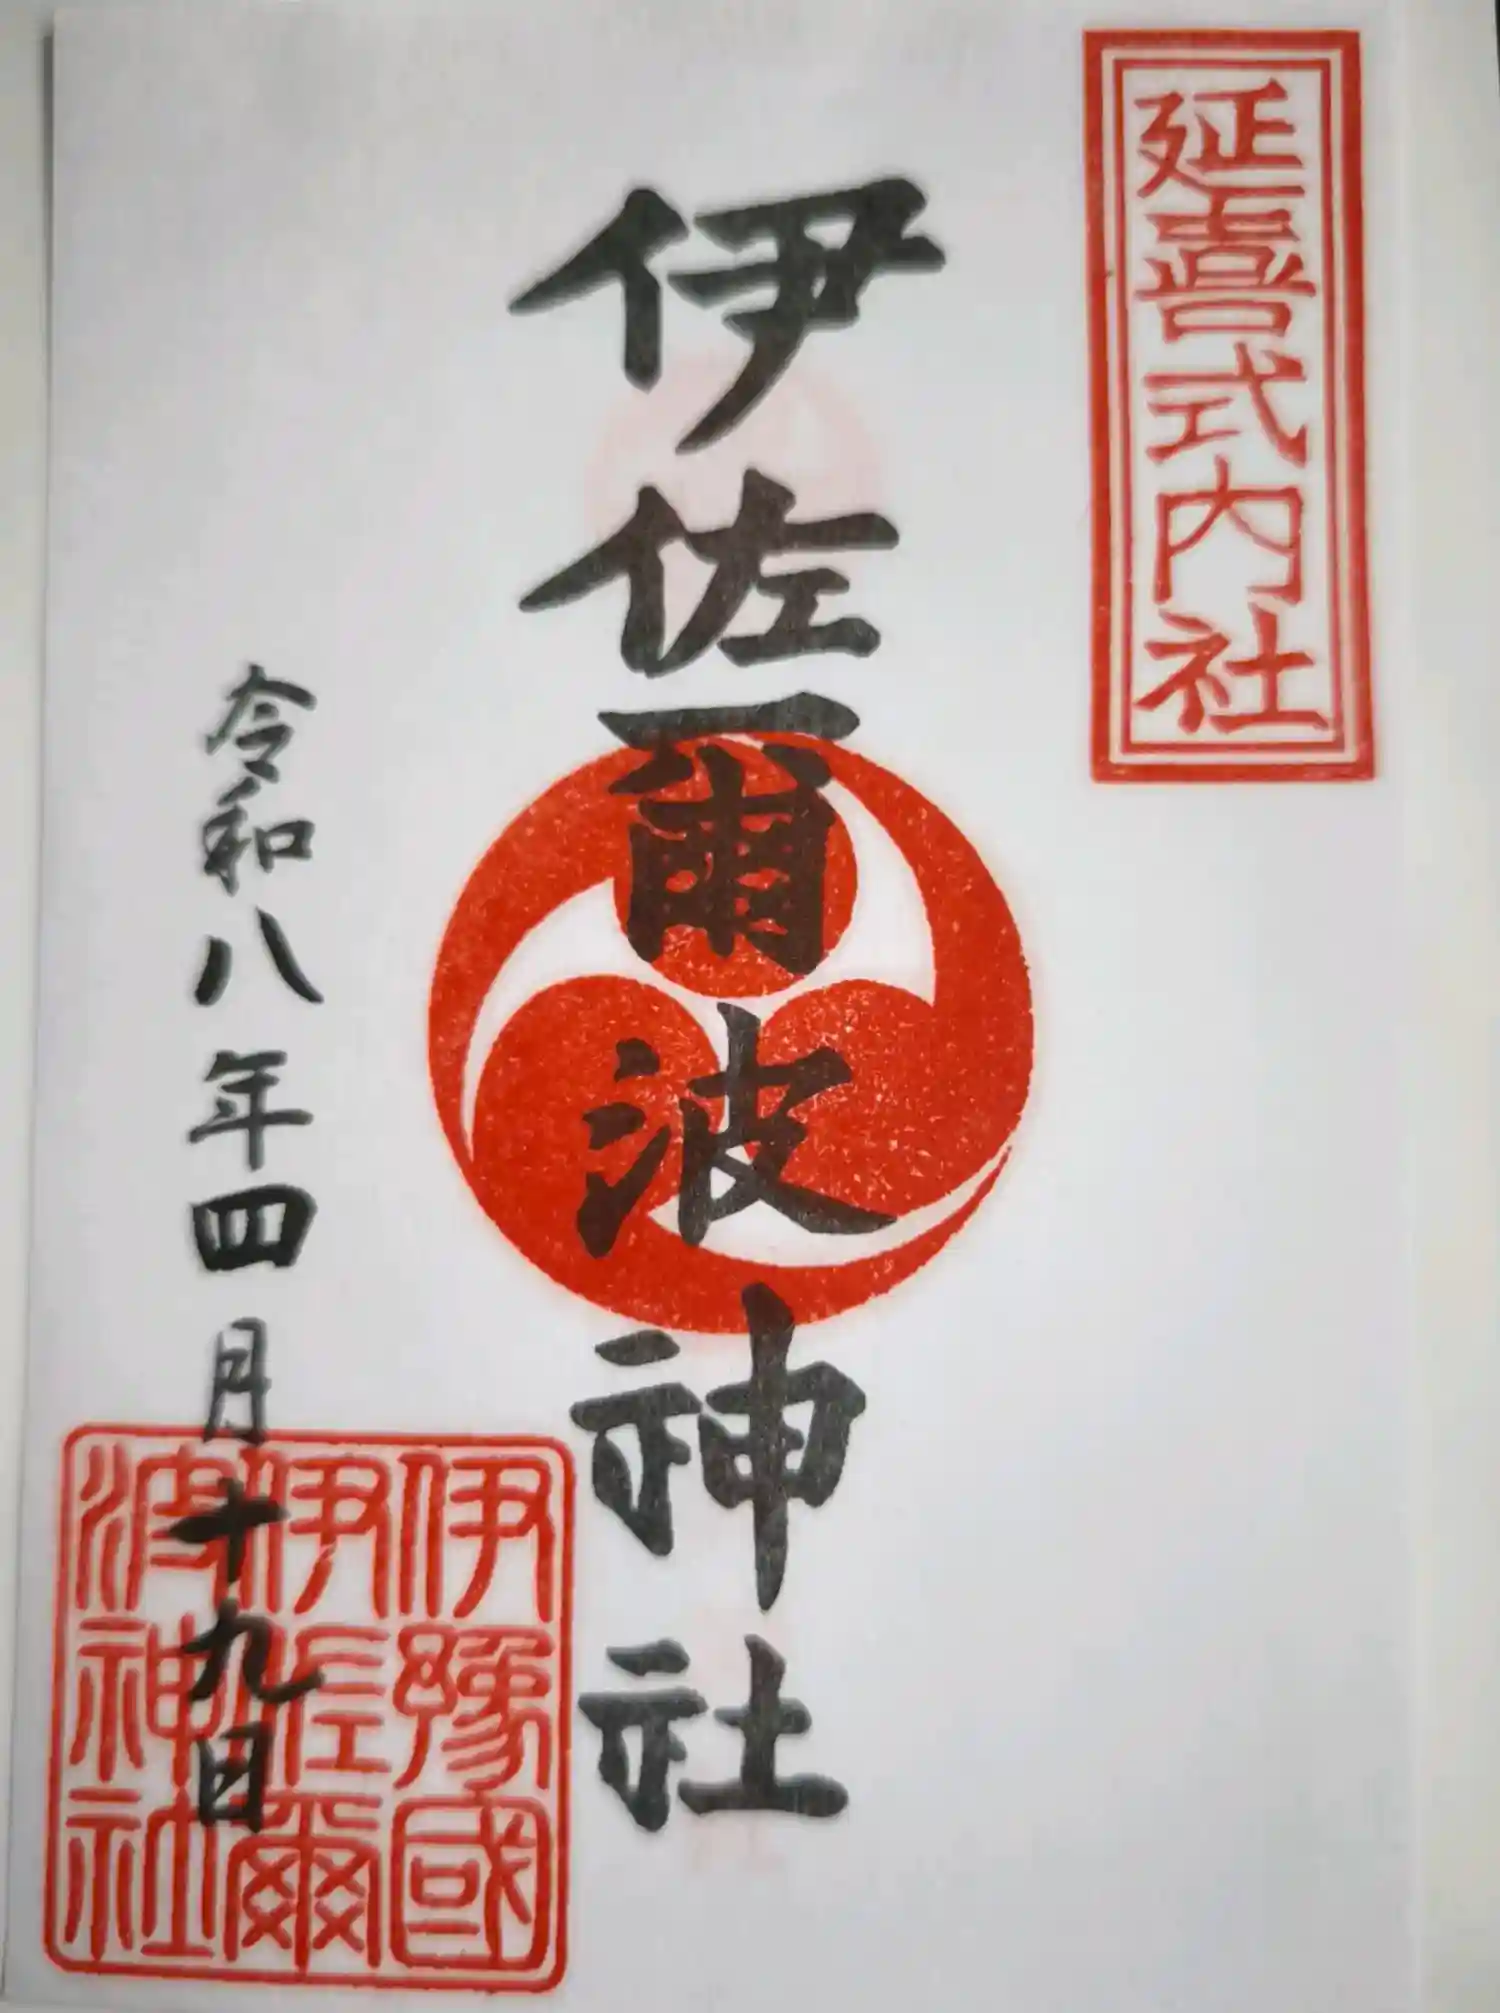 延喜式内社
伊佐爾波神社
令和八年四月十九日
伊豫國
伊佐爾
波神社